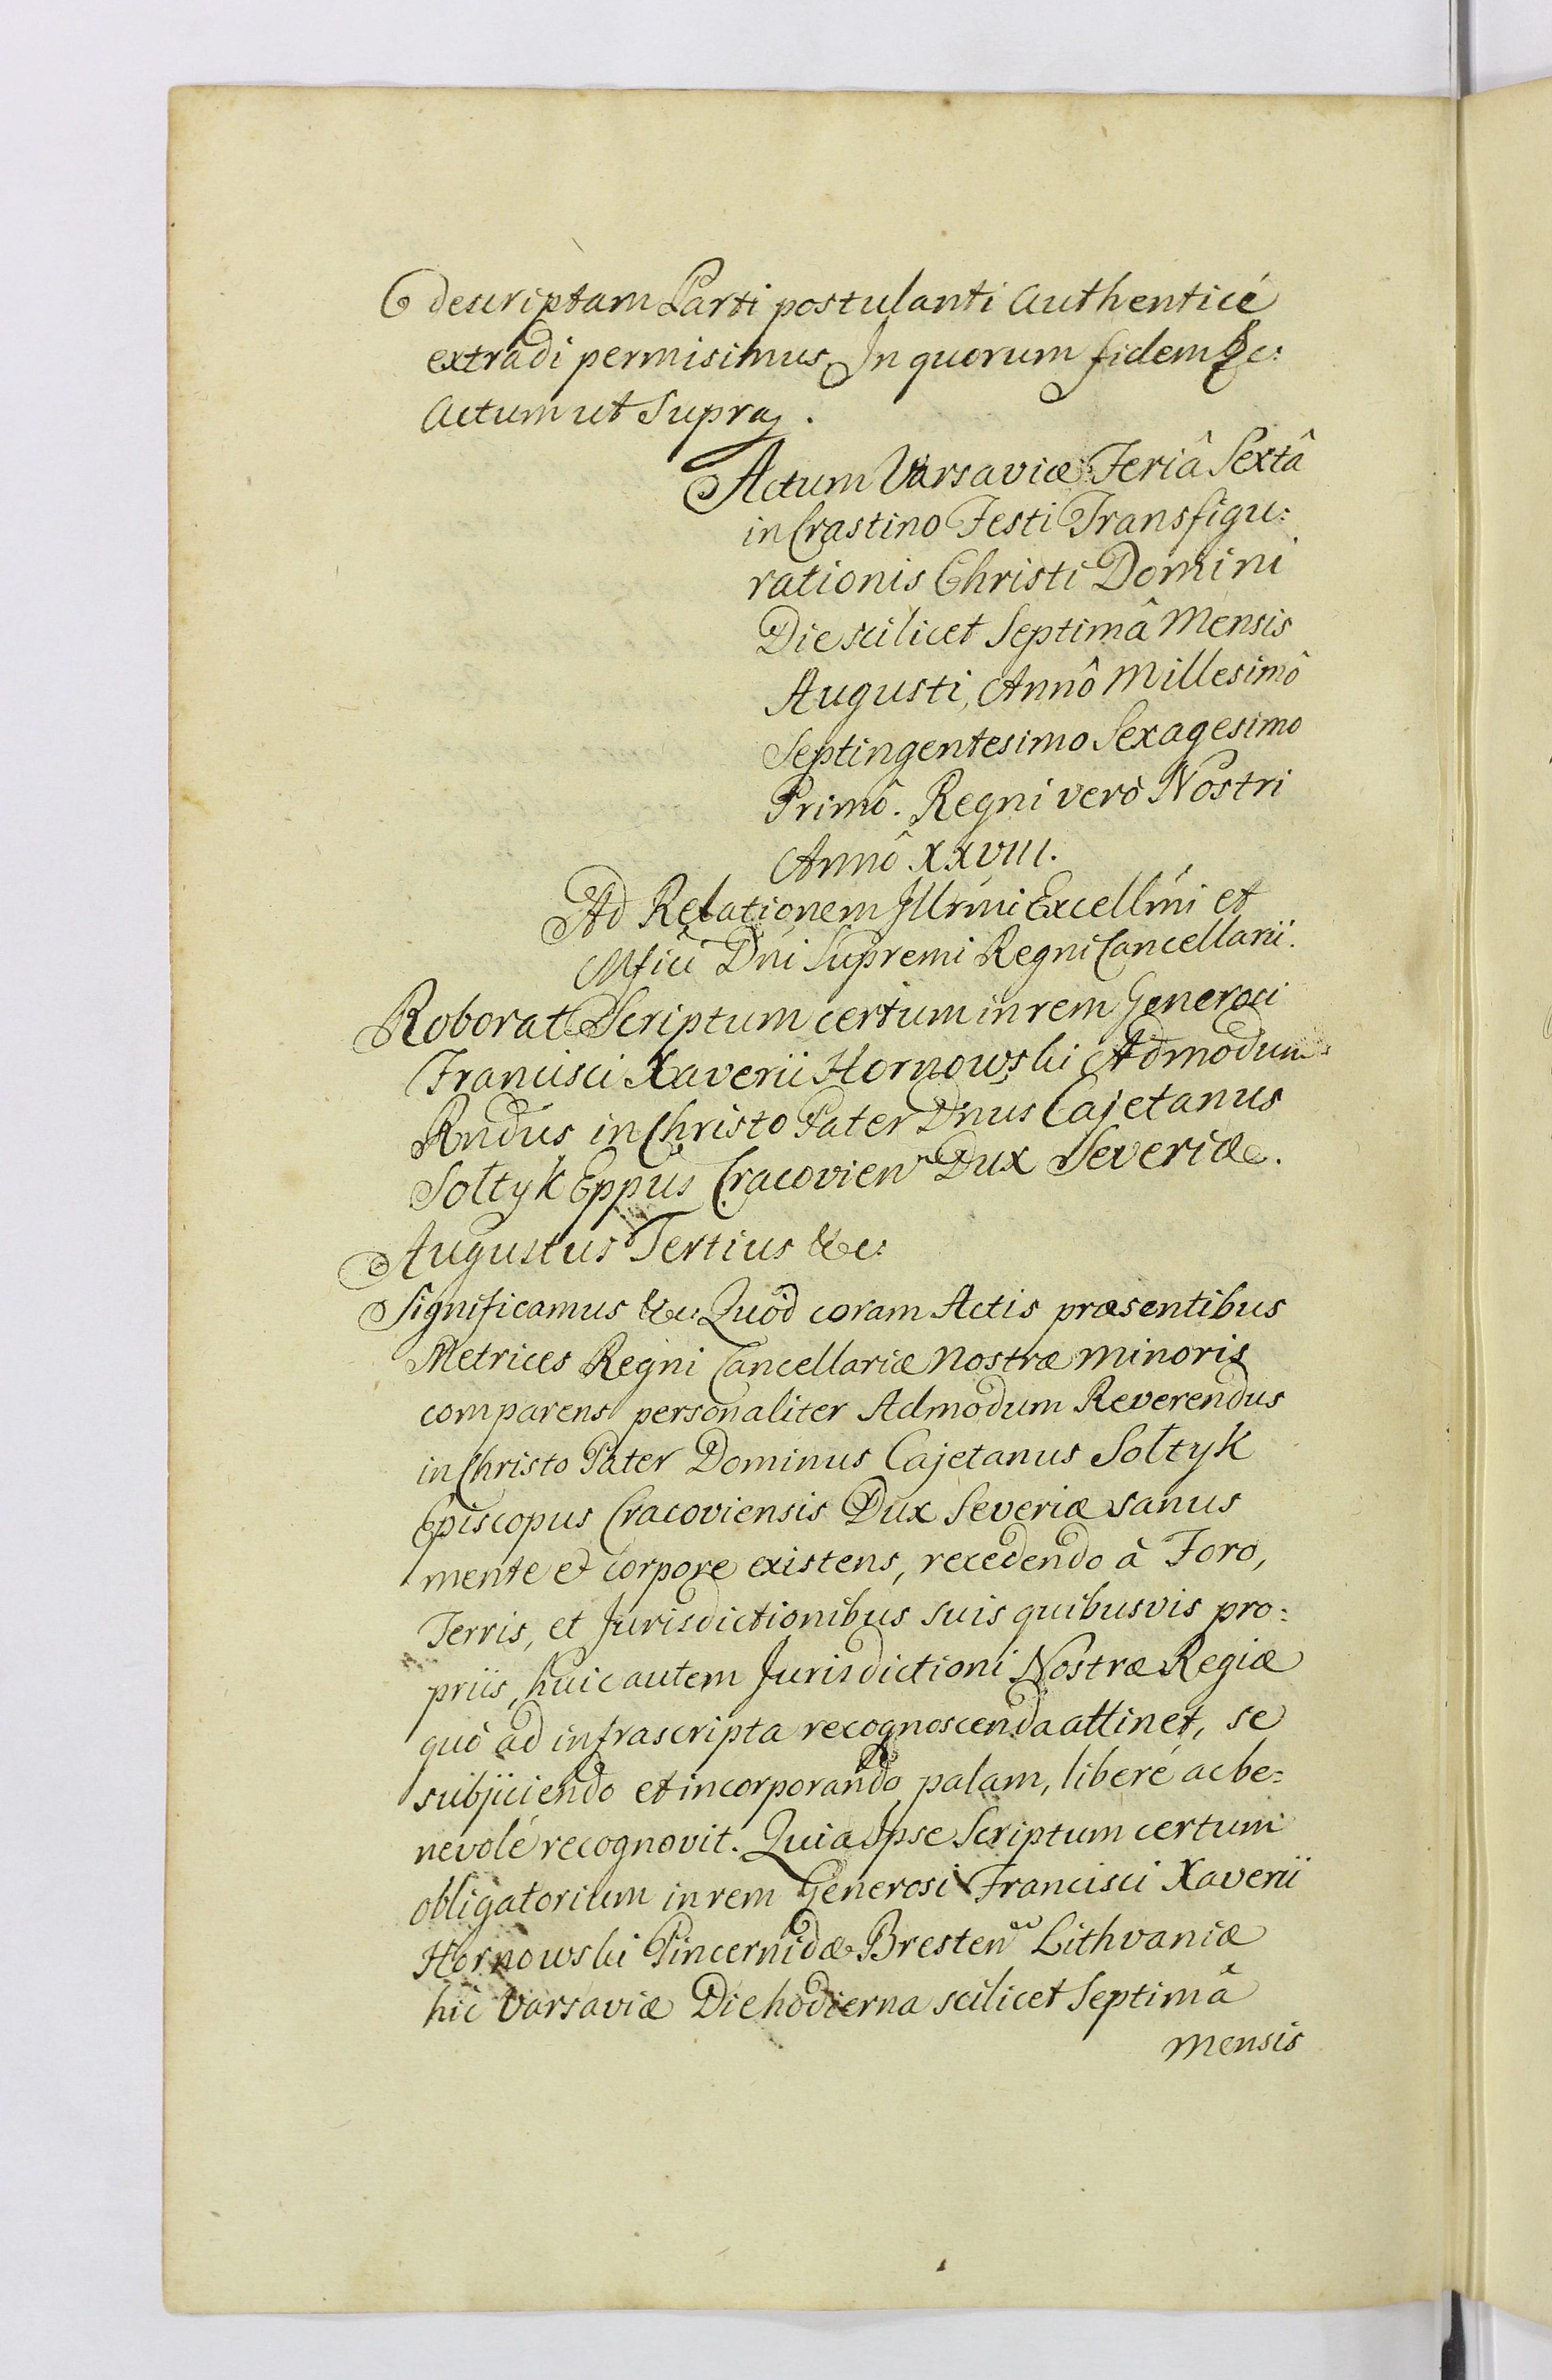 descriptam Parti postulanti Authenticè
extradi permisimus. In quorum fidem &c:
Actum ut Supra.
Actum Varsaviæ Feriâ Sextâ
in Crastino Festi Transfigu:
rationis Christi Domini
Die scilicet Septimâ Mensis
Augusti, Annô Millesimô
Septingentesimo Sexagesimo
Primô. Regni verò Nostri
Annô XXVIII.
Ad Relationem Illrmi Excellmi et
Mfici Dni Supremi Regni Cancellarii.
Roborat Scriptum certum in rem Generosi
Francisci Xaverii Hornowski Admodum
Rndus in Christo Pater Dnus Cajetanus
Sołtyk Eppus Cracovien Dux Severiæ.
Augustus Tertius &c:
Significamus &c: Quôd coram Actis præsentibus
Metrices Regni Cancellariæ Nostræ Minoris
comparens personaliter Admodum Reverendus
in Christo Pater Dominus Cajetanus Sołtyk
Episcopus Cracoviensis Dux Severiæ sanus
mente et corpore existens, recedendo à Foro,
Terris, et Jurisdictionibus suis quibusvis pro:
priis, huic autem Jurisdictioni Nostræ Regiæ
quò ad infrascripta recognoscenda attinet, se
subjiciendo et incorporando, palam, liberé ac be:
nevolé recognovit. Quia Ipse Scriptum certum
obligatorium in rem Generosi Francisci Xaverii
Hornowski Pincernidæ Bresten Lithvaniæ
hic Varsaviæ Die hodierna scilicet Septimâ
Mensis